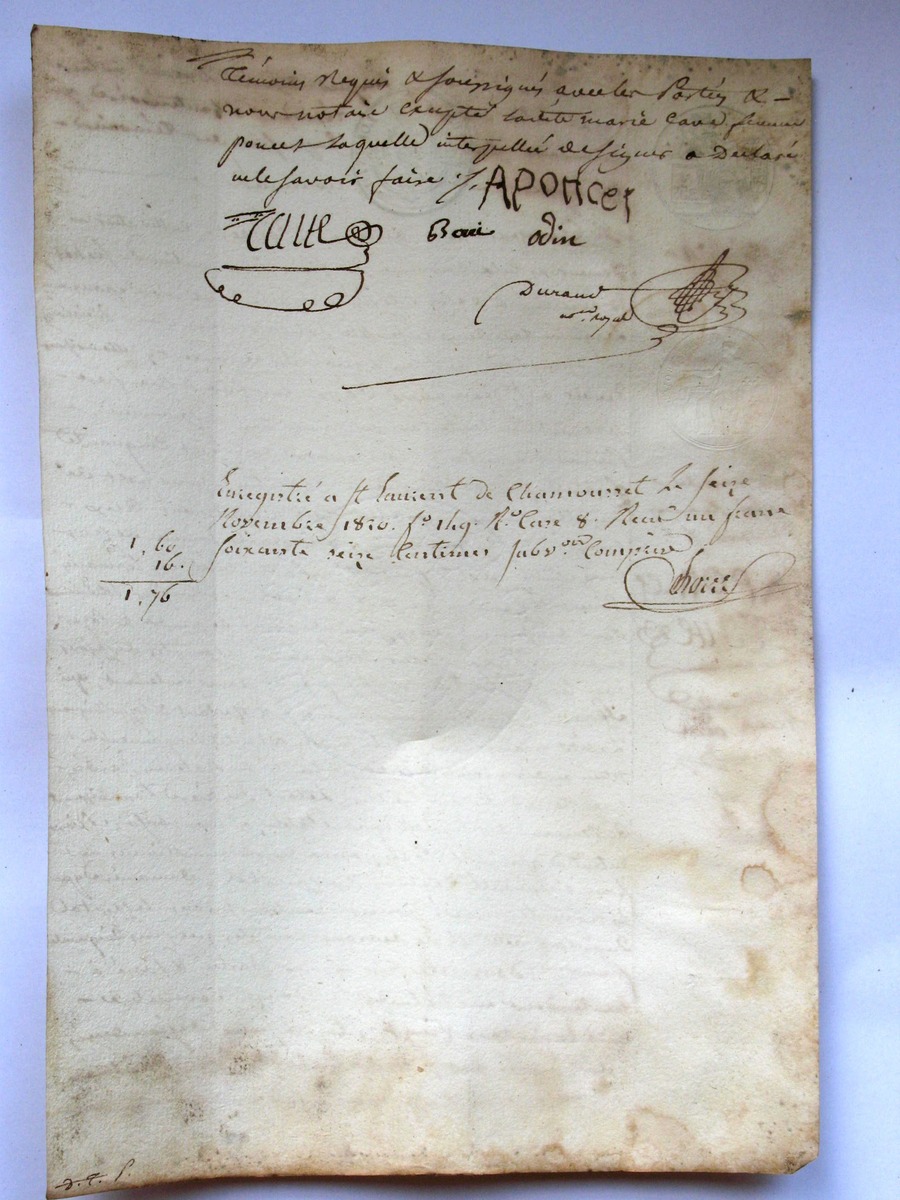 témoins Requis & soussignés avec les Parties &
nous notaire Excepté ladite marie Cave femme
poncet laquelle interpellée de signer a Declaré
ne le savoir faire ./.
APOnCet
odin
Durand
not.re royal
Enregistré a St Laurent de Chamousset Le seize
Novembre 1820. f.o 149. R.o Case 8. Recu un franc
1, 60 soixante seize Centimes subv.on Comprise
16.
1, 76